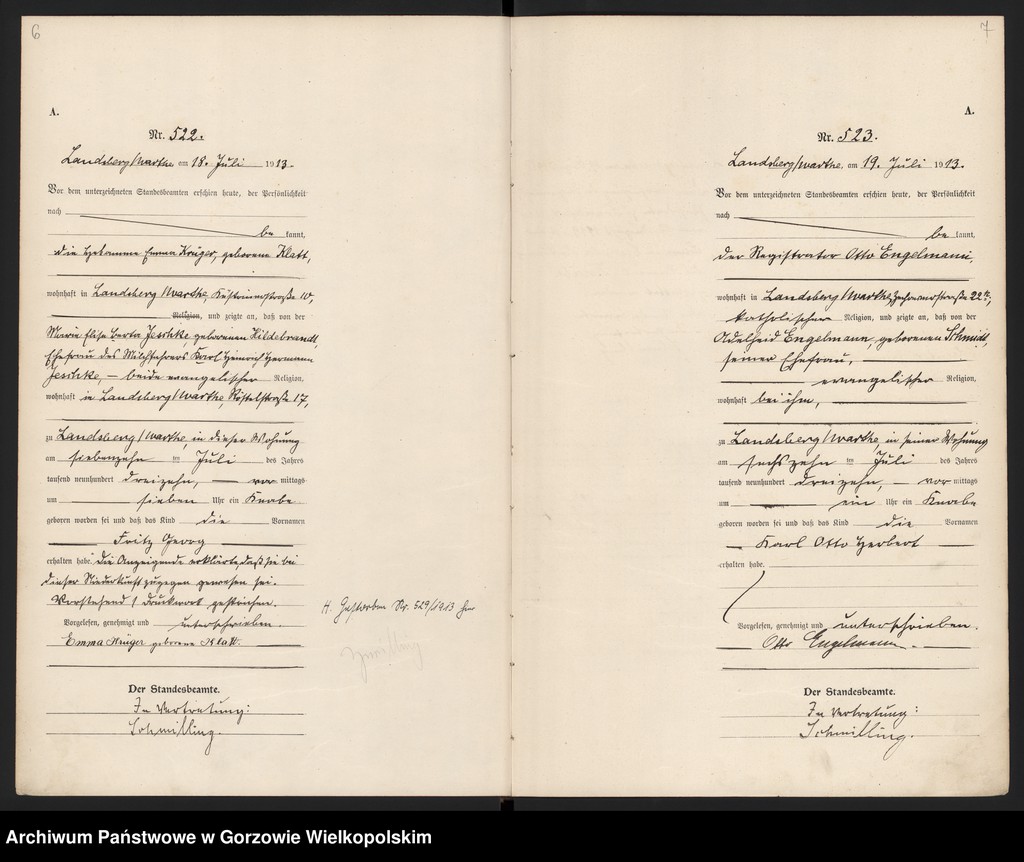 6
A.
Nr. 522.
Landsberg/Warthe am 18. Juli 1913.
Vor dem unterzeichneten Standesbeamten erschien heute, der Persönlichkeit
nach
be kannt,
die Hebamme Emma Krüger, geborene Klatt,
wohnhaft in Landsberg/Warthe, Küstrinerstraße 10,
Religion, und zeigte an, daß von der
Marie Elise Berta Jeschke, geborenen Hildebrandt,
Ehefrau des Milchfahrers Karl Heinrich Hermann
Jeschke, – beide evangelischer Religion,
wohnhaft in Landsberg/Warthe, Röstelstraße 17,
zu Landsberg/Warthe, in dieser Wohnung
am siebenzehn ten Juli des Jahres
tausend neunhundert dreizehn, — vor mittags
um sieben Uhr ein Knabe
geboren worden sei und daß das Kind die Vornamen
Fritz Georg
erhalten habe. Die Anzeigende erklärte, daß sie bei
dieser Niederkunft zugegen gewesen sei.
Vorstehend 1 Druckwort gestrichen.
Vorgelesen, genehmigt und unterschrieben.
Emma Krüger geborene Klatt.
Der Standesbeamte.
In Vertretung:
Schmilling.
H. Gestorben Nr. 529/1913
7
A.
Nr. 523.
Landsberg/Warthe, am 19. Juli 1913.
Vor dem unterzeichneten Standesbeamten erschien heute, der Persönlichkeit
nach
be kannt,
der Registrator Otto Engelmann,
wohnhaft in Landsberg/Warthe, 22
katholischer Religion, und zeigte an, daß von der
Adelheid Engelmann, geborenen Schmidt,
seiner Ehefrau,
evangelischer Religion,
wohnhaft bei ihm,
zu Landsberg/Warthe, in seiner Wohnung
am sechszehn ten Juli des Jahres
tausend neunhundert dreizehn, — vor mittags
um ein Uhr ein Knabe
geboren worden sei und daß das Kind die Vornamen
Karl Otto Herbert
erhalten habe.
Vorgelesen, genehmigt und unterschrieben.
Otto Engelmann.
Der Standesbeamte.
In Vertretung:
Schmilling.
Archiwum Państwowe w Gorzowie Wielkopolskim